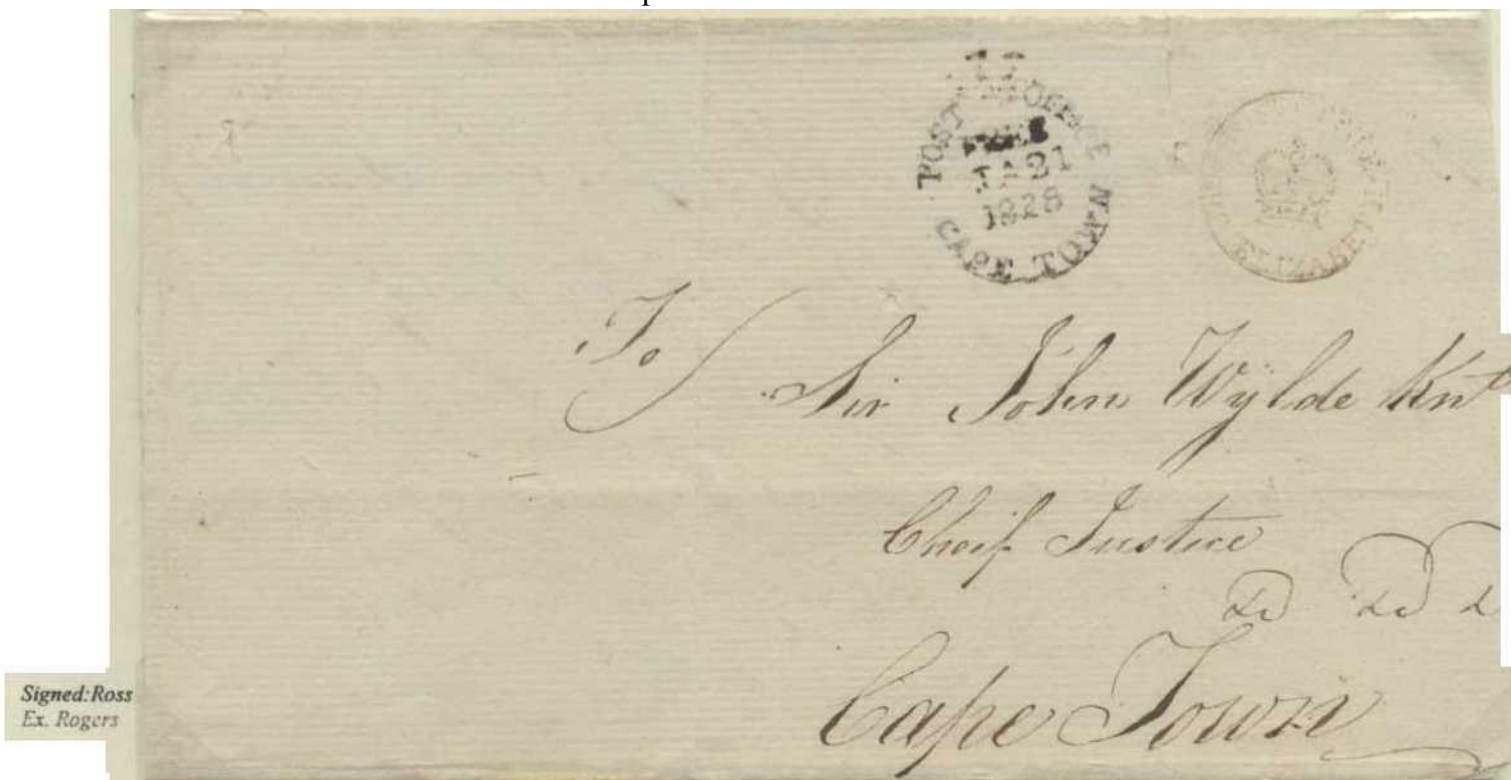 POST OFFICE
FREE
JA 31
1828
CAPE TOWN
ELIZABETH
To
Sir John Wylde Knt
Cheif Justice
Cape Town
Signed: Ross
Ex. Rogers